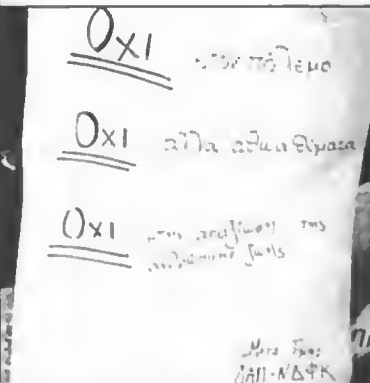 Οχι στον πόλεμο
Οχι άλλα αθώα θύματα
Οχι στην απαξίωση της
ανθρώπινης ζωής
ΔΑΠ-ΝΔΦΚ